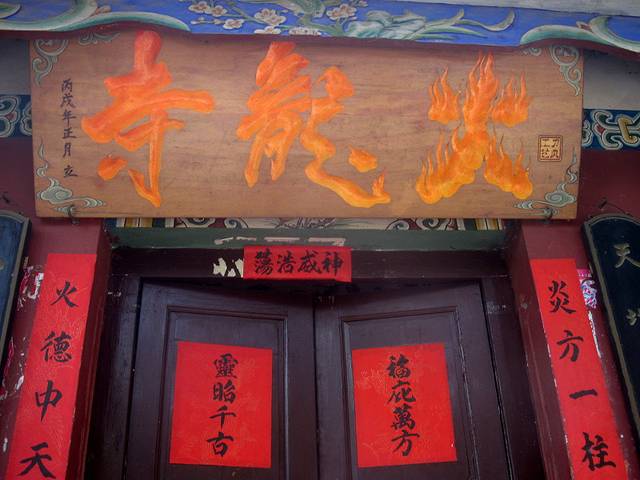 火龍寺
丙戌年正月立
神威浩蕩
炎方一柱
火德中天
福庇萬方
靈昭千古
天